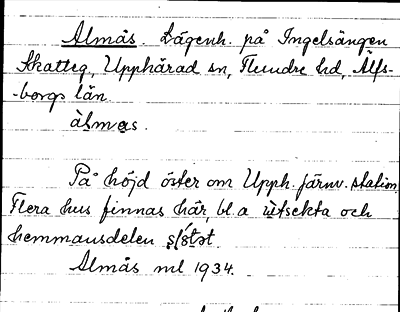 Almås. Lägenh. på Ingelsängen
Skatteg, Upphärad sn, Flundre hd, Älfs-
-borgs län.
àlmas.
På höjd öster om Upph. järnv. station.
Flera hus finnas här, bl.a ùtsekta och
hemmansdelen
Almås ml 1934.